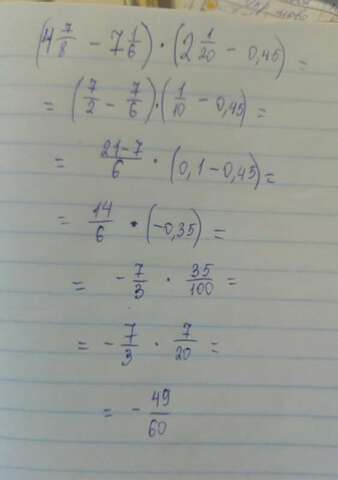 (4 7/8 − 7 1/6) · (2 1/20 − 0,45) =
= (7/2 − 7/6) · (1/10 − 0,45) =
= 21−7/6 · (0,1−0,45) =
= 14/6 · (−0,35) =
= − 7/3 · 35/100 =
= − 7/3 · 7/20 =
= − 49/60